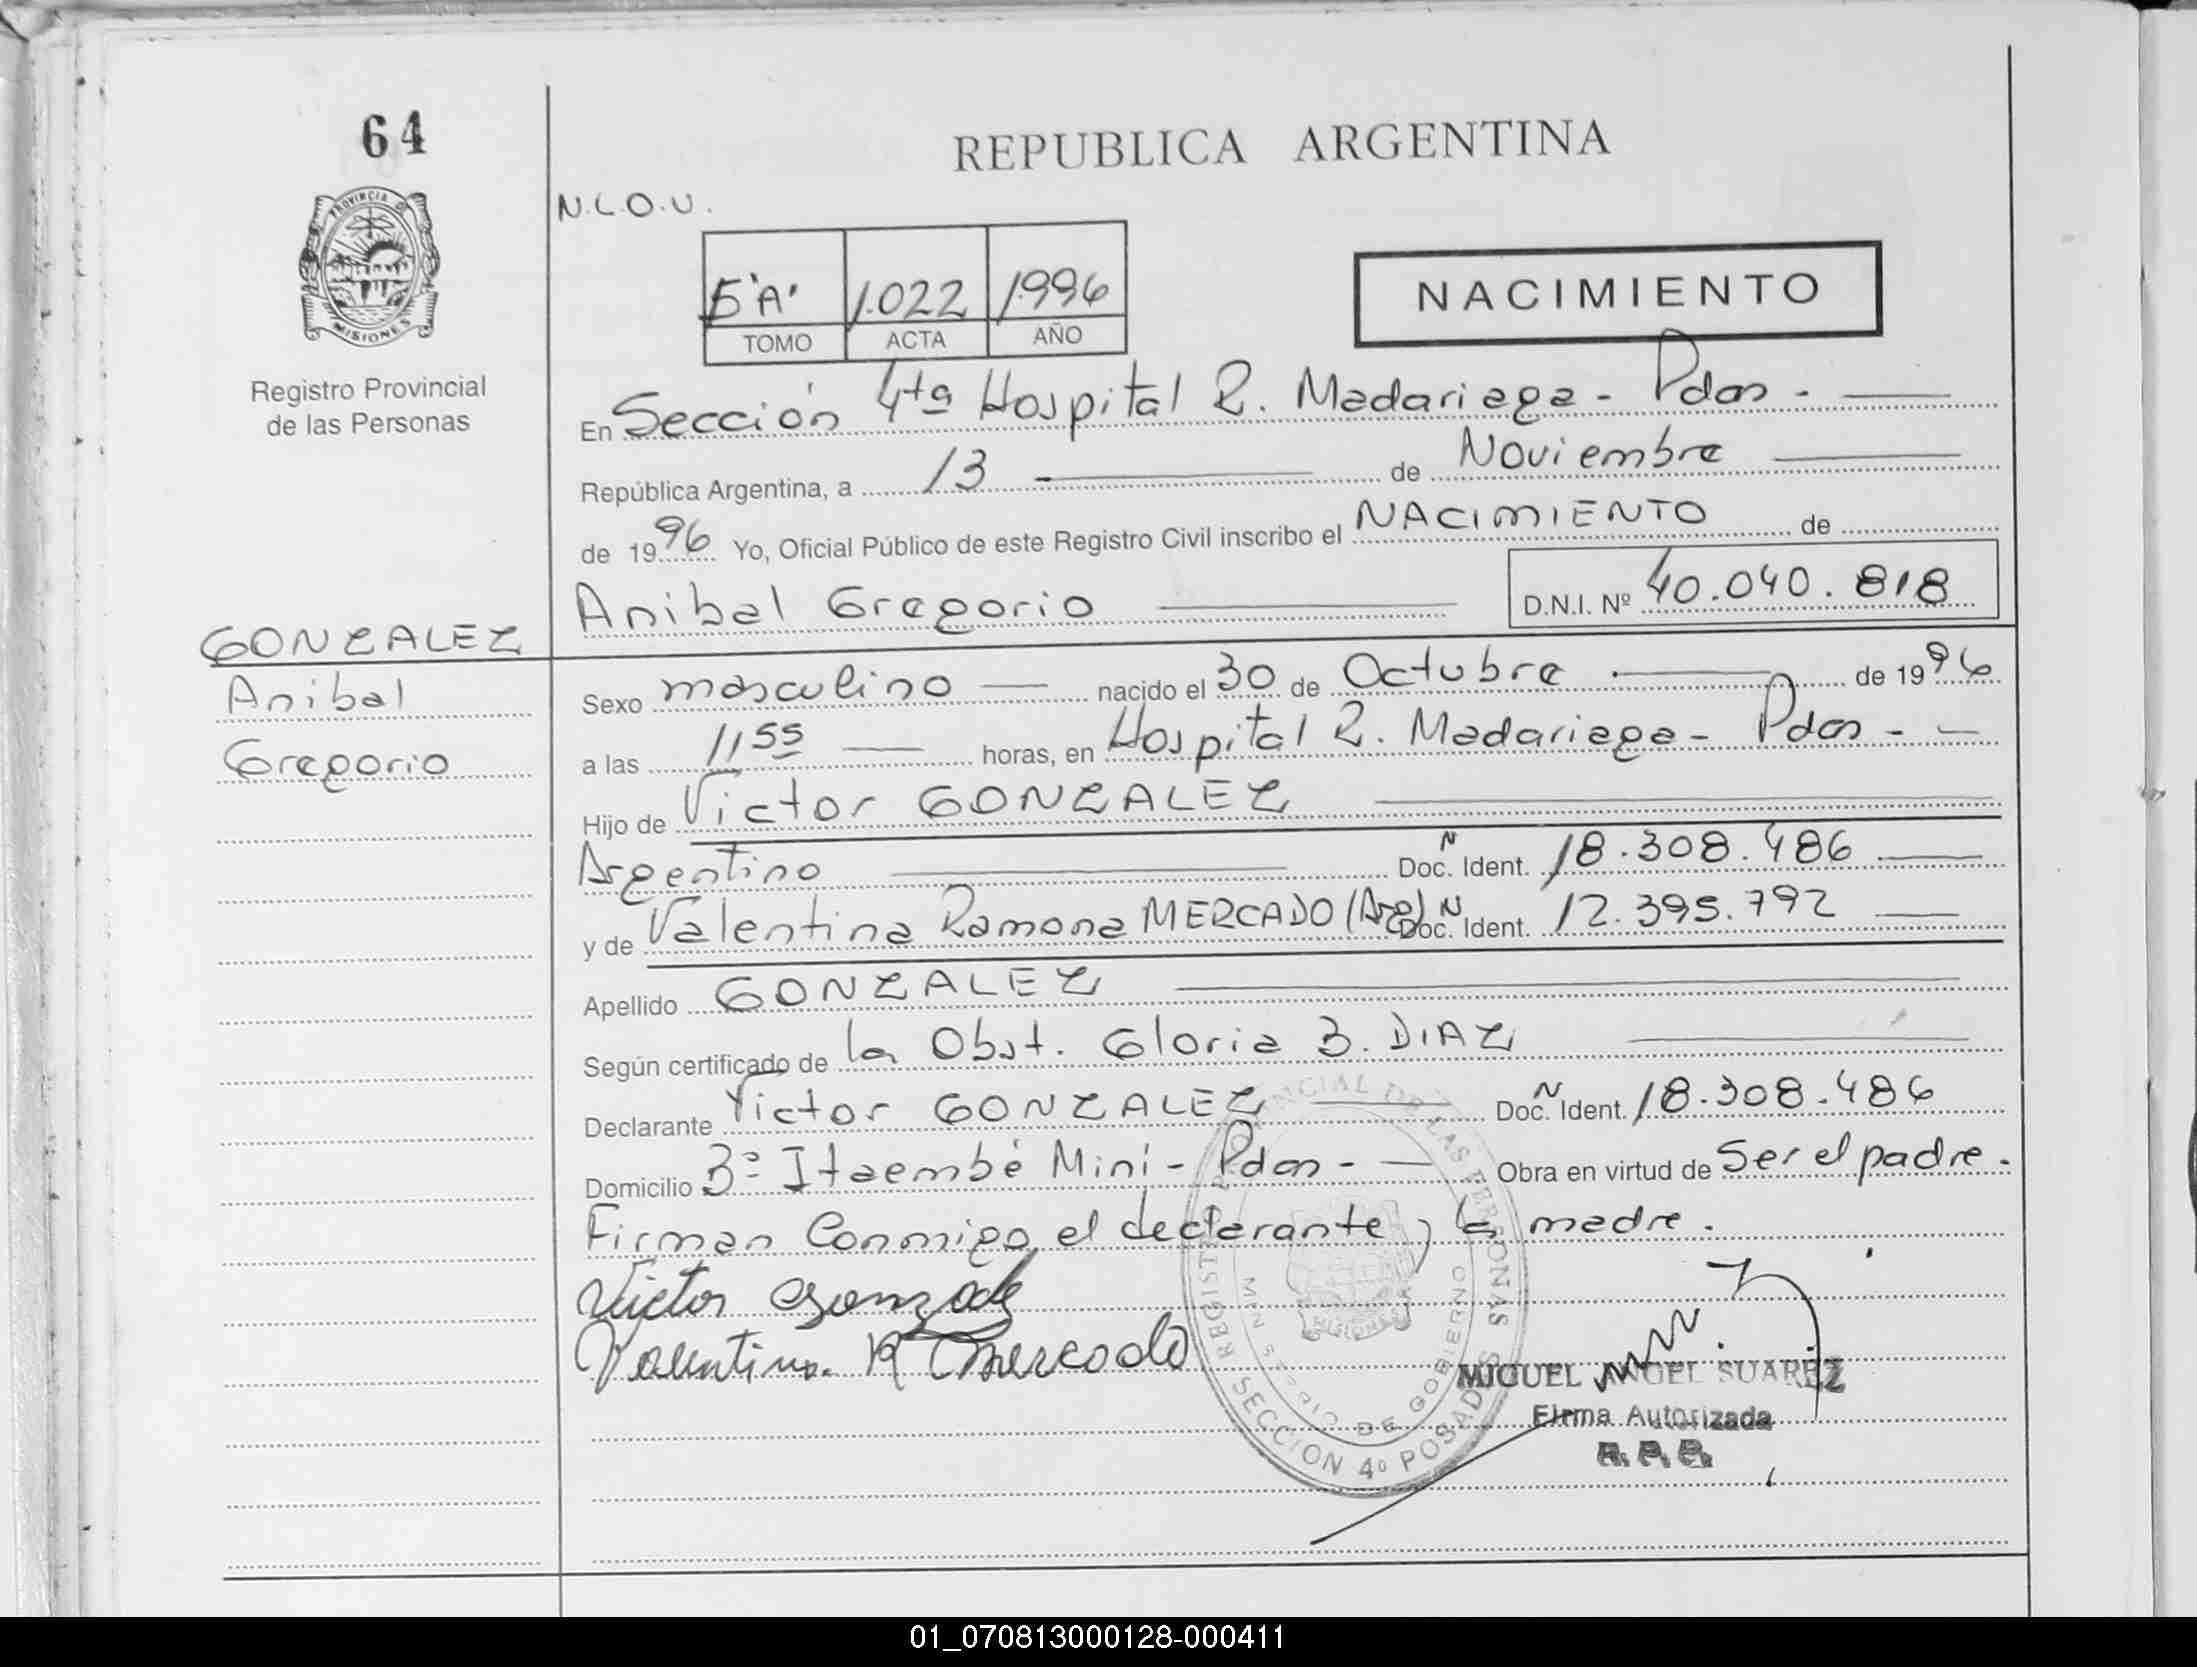 64
REPUBLICA ARGENTINA
PROVINCIA DE
MISIONES
N.L.O.U.
5"A" 1.022 1996
TOMO ACTA AÑO
NACIMIENTO
Registro Provincial
de las Personas
En Sección 4ta Hospital R. Madariaga - Pdas -
República Argentina, a 13 de Noviembre
de 1996 Yo, Oficial Público de este Registro Civil inscribo el NACIMIENTO de
Anibal Gregorio D.N.I. Nº 40.040.818
GONZALEZ
Anibal
Gregorio
Sexo masculino nacido el 30 de Octubre de 1996
a las 11 55 horas, en Hospital R. Madariaga - Pdas -
Hijo de Victor GONZALEZ
Argentino Doc. N Ident. 18.308.486
y de Valentina Ramona MERCADO (Arg) Doc. N Ident. 12.395.792
Apellido GONZALEZ
Según certificado de la Obst. Gloria B. DIAZ
Declarante Victor GONZALEZ Doc. N Ident. 18.308.486
Domicilio Bº Itaembé Miní - Pdas - Obra en virtud de Ser el padre.
Firman Conmigo el declarante y la madre.
Victor Gonzalez
Valentina R Mercado
REGISTRO PROVINCIAL DE LAS PERSONAS
MINISTERIO DE GOBIERNO
MISIONES
SECCION 4º POSADAS
MIGUEL ANGEL SUAREZ
Firma Autorizada
R. P. P.
01_070813000128-000411